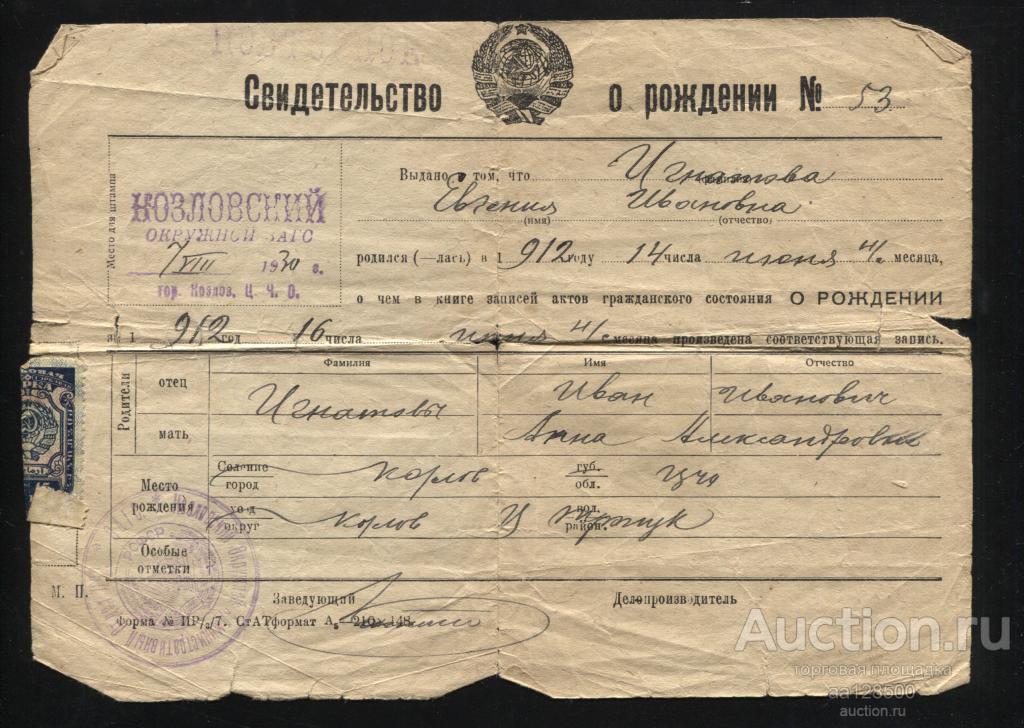 Свидетельство о рождении № 53
Место для штампа
КОЗЛОВСКИЙ
ОКРУЖНОЙ ЗАГС
7/VIII 1930 г.
гор. Козлов, Ц. Ч. О.
Выдано о том, что Игнатова
Евгения Ивановна
(имя) (отчество)
родился (—лась) в 1912 году 14 числа июня м/ц месяца,
о чем в книге записей актов гражданского состояния О РОЖДЕНИИ
за 1912 год 16 числа июня м/ц месяца произведена соответствующая запись.
Фамилия Имя Отчество
Родители
отец Игнатовы Иван Иванович
мать Анна Александровна
Место рождения
Селение город Козлов губ. обл. ЦЧО
уезд округ Козлов вол. район.
Особые отметки
М. П.
Заведующий Делопроизводитель
Форма № ИР/з/7. СтАТформат А5 210×148
РСФСР
Auction.ru
торговая площадка
aa128500
auction.ru